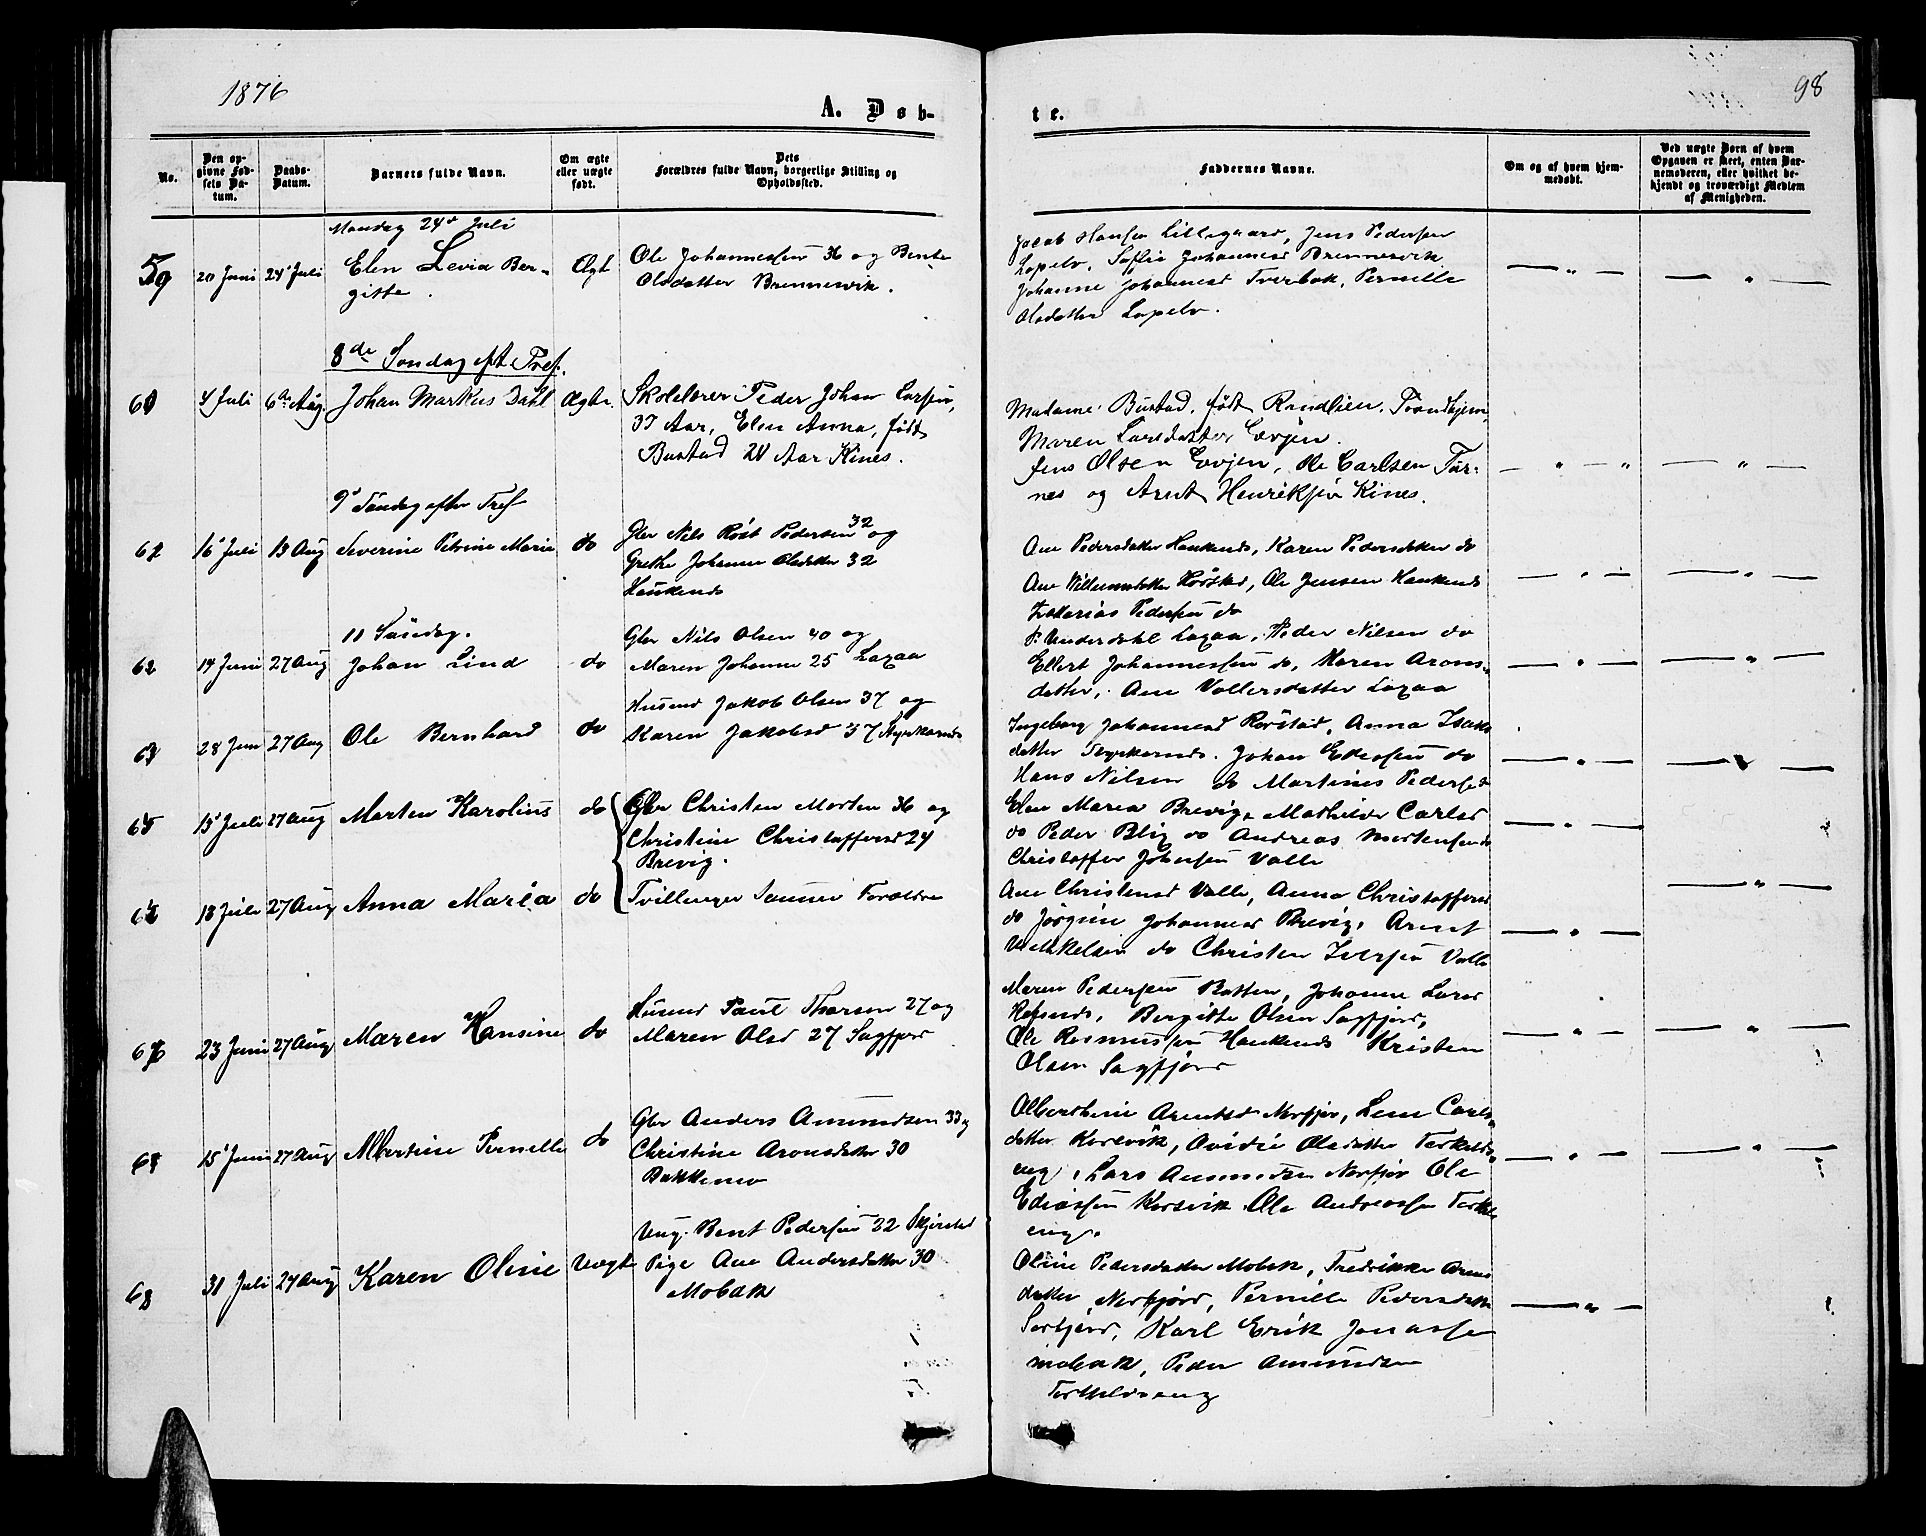 1876
A. Døb-
te.
98
No.
Den op-
givne Fød-
sels Da-
tum.
Daabs-
Datum.
Barnets fulde Navn.
Om ægte
eller uægte
født.
Dets
Forældres fulde Navn, borgerlige Stilling og
Opholdssted.
Faddernes Navne.
Om og af hvem hjem-
medøbt.
Ved uægte Børn af hvem
Opgaven er skeet, enten Bar-
nemoderen, eller hvilket be-
kjendt og troværdigt Medlem
af Menigheden.
Mandag 24de Juli
59 20 Juni 24 Juli Elen Levia Ber-
gitte.
Ægte
Ole Johannessen 36 og Bente
Olsdatter Brennesvik.
Jacob Hansen Lillegaard, Jens Pedersen
Lapelv. Sofie Johannesd Brennesvik
Johanne Johannesd Tverbak, Pernelle
Olsdatter Lapelv.
8de Søndag eft Tref.
60 4 Juli 6te Aug. Johan Markus Dahl Ægte.
Skolelærer Peder Johan Larsen,
37 Aar, Elen Anna, født
Bustad 24 Aar Kines.
Madame Bustad, født Randlien, Trondhjem,
Maren Larsdatter Evjen.
Jens Olsen Evjen, Ole Carlsen Tür-
nes og Arnt Henriksen Kines.
9de Søndag efter Tref
61 16 Juli 13 Aug Severine Petrine Marie do
Gbr Nils Røst Pedersen 32 og
Grethe Johanne Olsdatter 32
Haukenes
Ane Pedersdatter Haukenes, Karen Pedersdatter do
Ane Villumsdatter Hørstad, Ole Jensen Haukenes
Zakarias Pedersen do
11 Søndag.
62 14 Juni 27 Aug Johan Lind do
Gbr Nils Olsen 40 og
Maren Johanne 25 Laxaa
P. Underdahl Laxaa, Peder Nilsen do
Ellert Johannessen do, Maren Arons-
datter, Ane Vollersdatter Laxaa
63 28 Jun 27 Aug Ole Bernhard do
Husmd Jakob Olsen 37 og
Karen Jakobsd 37 Styrkesnes
Ingeborg Johannesd Rørstad, Anna Isaks
datter Styrkesnes. Johan Ediassen do
Hans Nilsen do Martinus Peders do
64 15 Juli 27 Aug Morten Karolius do
Gbr Christen Morten 36 og
Christine Christoffersd 24
Brevig.
Elen Maria Brevig, Mathilde Carlsd
do Peder Blix do Andreas Mortensen do
Christoffer Johnsen Valle
65 18 Juli 27 Aug Anna Maria do
Tvillinger Samme Forældre
Ane Christensd Valle, Anna Christoffersd
do Jørgine Johannesd Brevig, Arent
Mikkelsen do Christen Iversen Valle
66 23 Juni 27 Aug Maren Hansine do
Husmd Paul Thorsen 27 og
Maren Olsd 27 Sagfjord
Maren Pedersen Botten, Johanne Larsd
Refsnes, Bergitte Olsen Sagfjord,
Ole Rasmussen Haukenes Kristen
Olsen Sagfjord
67 15 Juni 27 Aug Albertine Pernelle do
Gbr Anders Amundsen 33 og
Christine Aronsdatter 30
Bakkemo
Albertine Arentsd Nerfjor, Lene Carls-
datter Korsvik, Ovidie Olsdatter Torkelds-
eng, Lars Amundsen Nerfjor Ole
Ediassen Korsvik Ole Andreassen Torkelds
eng.
68 31 Juli 27 Aug Karen Oline Uægte
Ung. Bent Pedersen 22 Skjerstad
Pige Ane Andersdatter 30
Mobakk
Oline Pedersdatter Mobak, Fredrikke Arns
datter Nerfjord, Pernille Pedersdatter
Sørfjord, Karl Erik Jonassen
Mobakk, Peder Amundsen
Torkeldseng